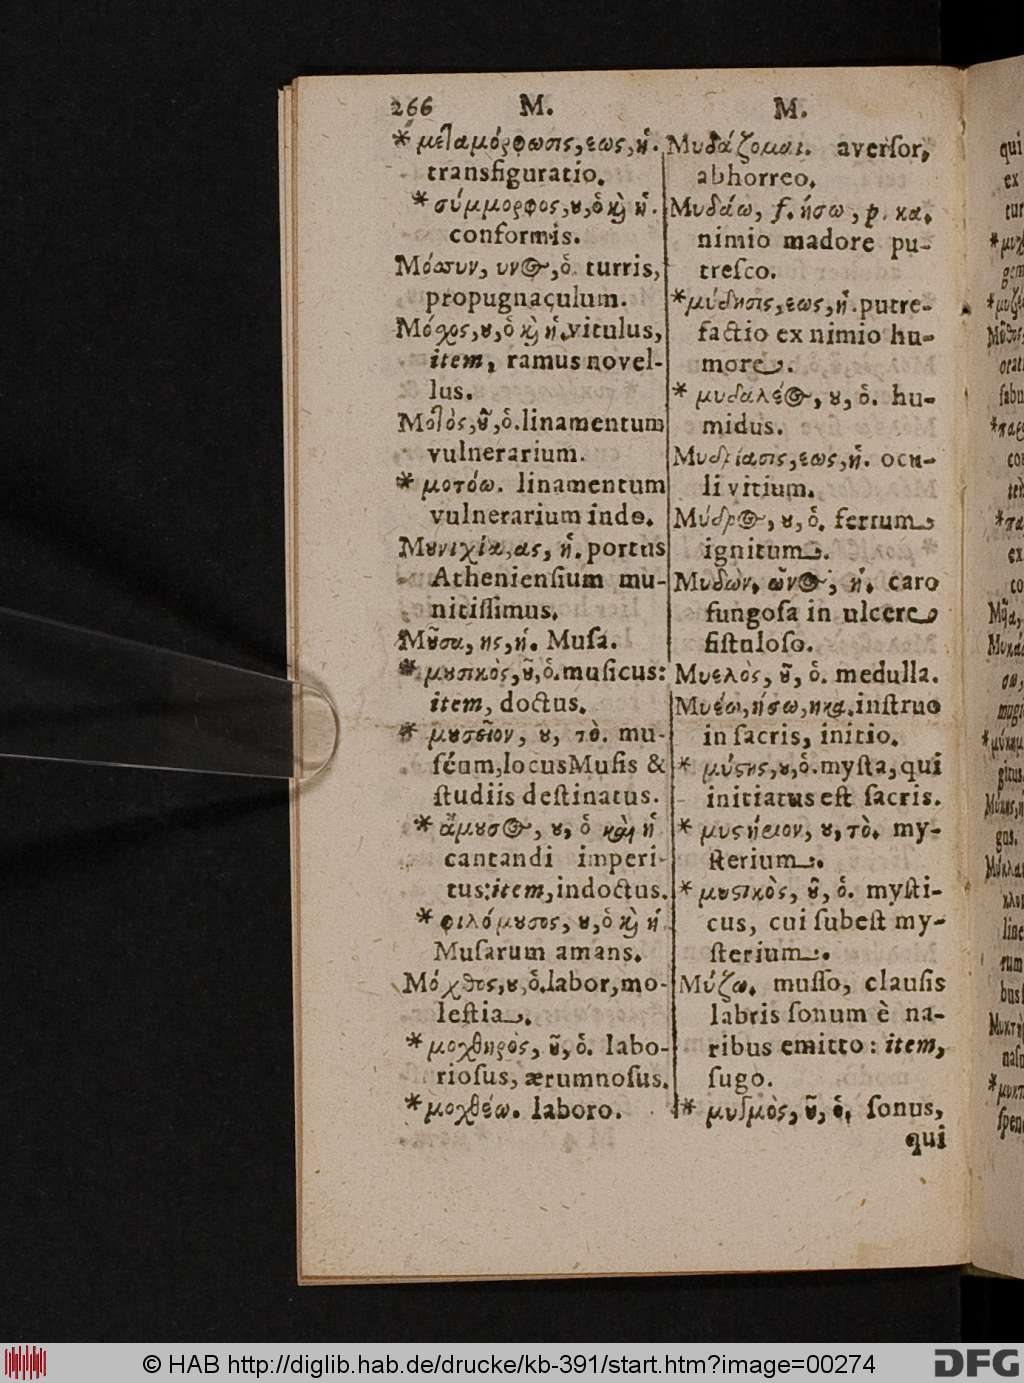 266 M. M.
* μεταμόρφωσις, εως, ἡ.
transfiguratio.
* σύμμορφος, ȣ, ὁ κὴ ἡ.
conformis.
Μόσυν, υνος, ὁ. turris,
propugnaculum.
Μόσχος, ȣ, ὁ κὴ ἡ. vitulus,
item, ramus novel-
lus.
Μοτὸς, ȣ͂, ὁ. linamentum
vulnerarium.
* μοτόω. linamentum
vulnerarium indo.
Μȣνιχία, ας, ἡ. portus
Atheniensium mu-
nitiſſimus.
Μȣ͂σα, ης, ἡ. Muſa.
* μȣσικὸς, ȣ͂, ὁ. muſicus:
item, doctus.
* μȣσεῖον, ȣ, τὸ. mu-
ſéum, locus Muſis &
ſtudiis deſtinatus.
* ἄμȣσος, ȣ, ὁ καὶ ἡ
cantandi imperi-
tus: item, indoctus.
* φιλόμȣσος, ȣ, ὁ κὴ ἡ
Muſarum amans.
Μόχθος, ȣ, ὁ. labor, mo-
leſtia.
* μοχθηρὸς, ȣ͂, ὁ. labo-
rioſus, ærumnoſus.
* μοχθέω. laboro.
Μυδάζομαι. averſor,
abhorreo.
Μυδάω, f. ήσω, p. κα.
nimio madore pu-
treſco.
* μύδησις, εως, ἡ. putre-
factio ex nimio hu-
more.
* μυδαλέος, ȣ, ὁ. hu-
midus.
Μυδρίασις, εως, ἡ. ocu-
li vitium.
Μύδρος, ȣ, ὁ. ferrum
ignitum.
Μυδὼν, ῶνος, ἡ. caro
fungoſa in ulcere
fiſtuloſo.
Μυελὸς, ȣ͂, ὁ. medulla.
Μυέω, ήσω, ηκα. inſtruo
in ſacris, initio.
* μύϛης, ȣ, ὁ. myſta, qui
initiatus eſt ſacris.
* μυϛήριον, ȣ, τὸ. my-
ſterium.
* μυϛικὸς, ȣ͂, ὁ. myſti-
cus, cui ſubeſt my-
ſterium.
Μύζω. muſſo, clauſis
labris ſonum è na-
ribus emitto: item,
ſugo.
* μυσμὸς, ȣ͂, ὁ. ſonus,
qui
© HAB http://diglib.hab.de/drucke/kb-391/start.htm?image=00274
DFG